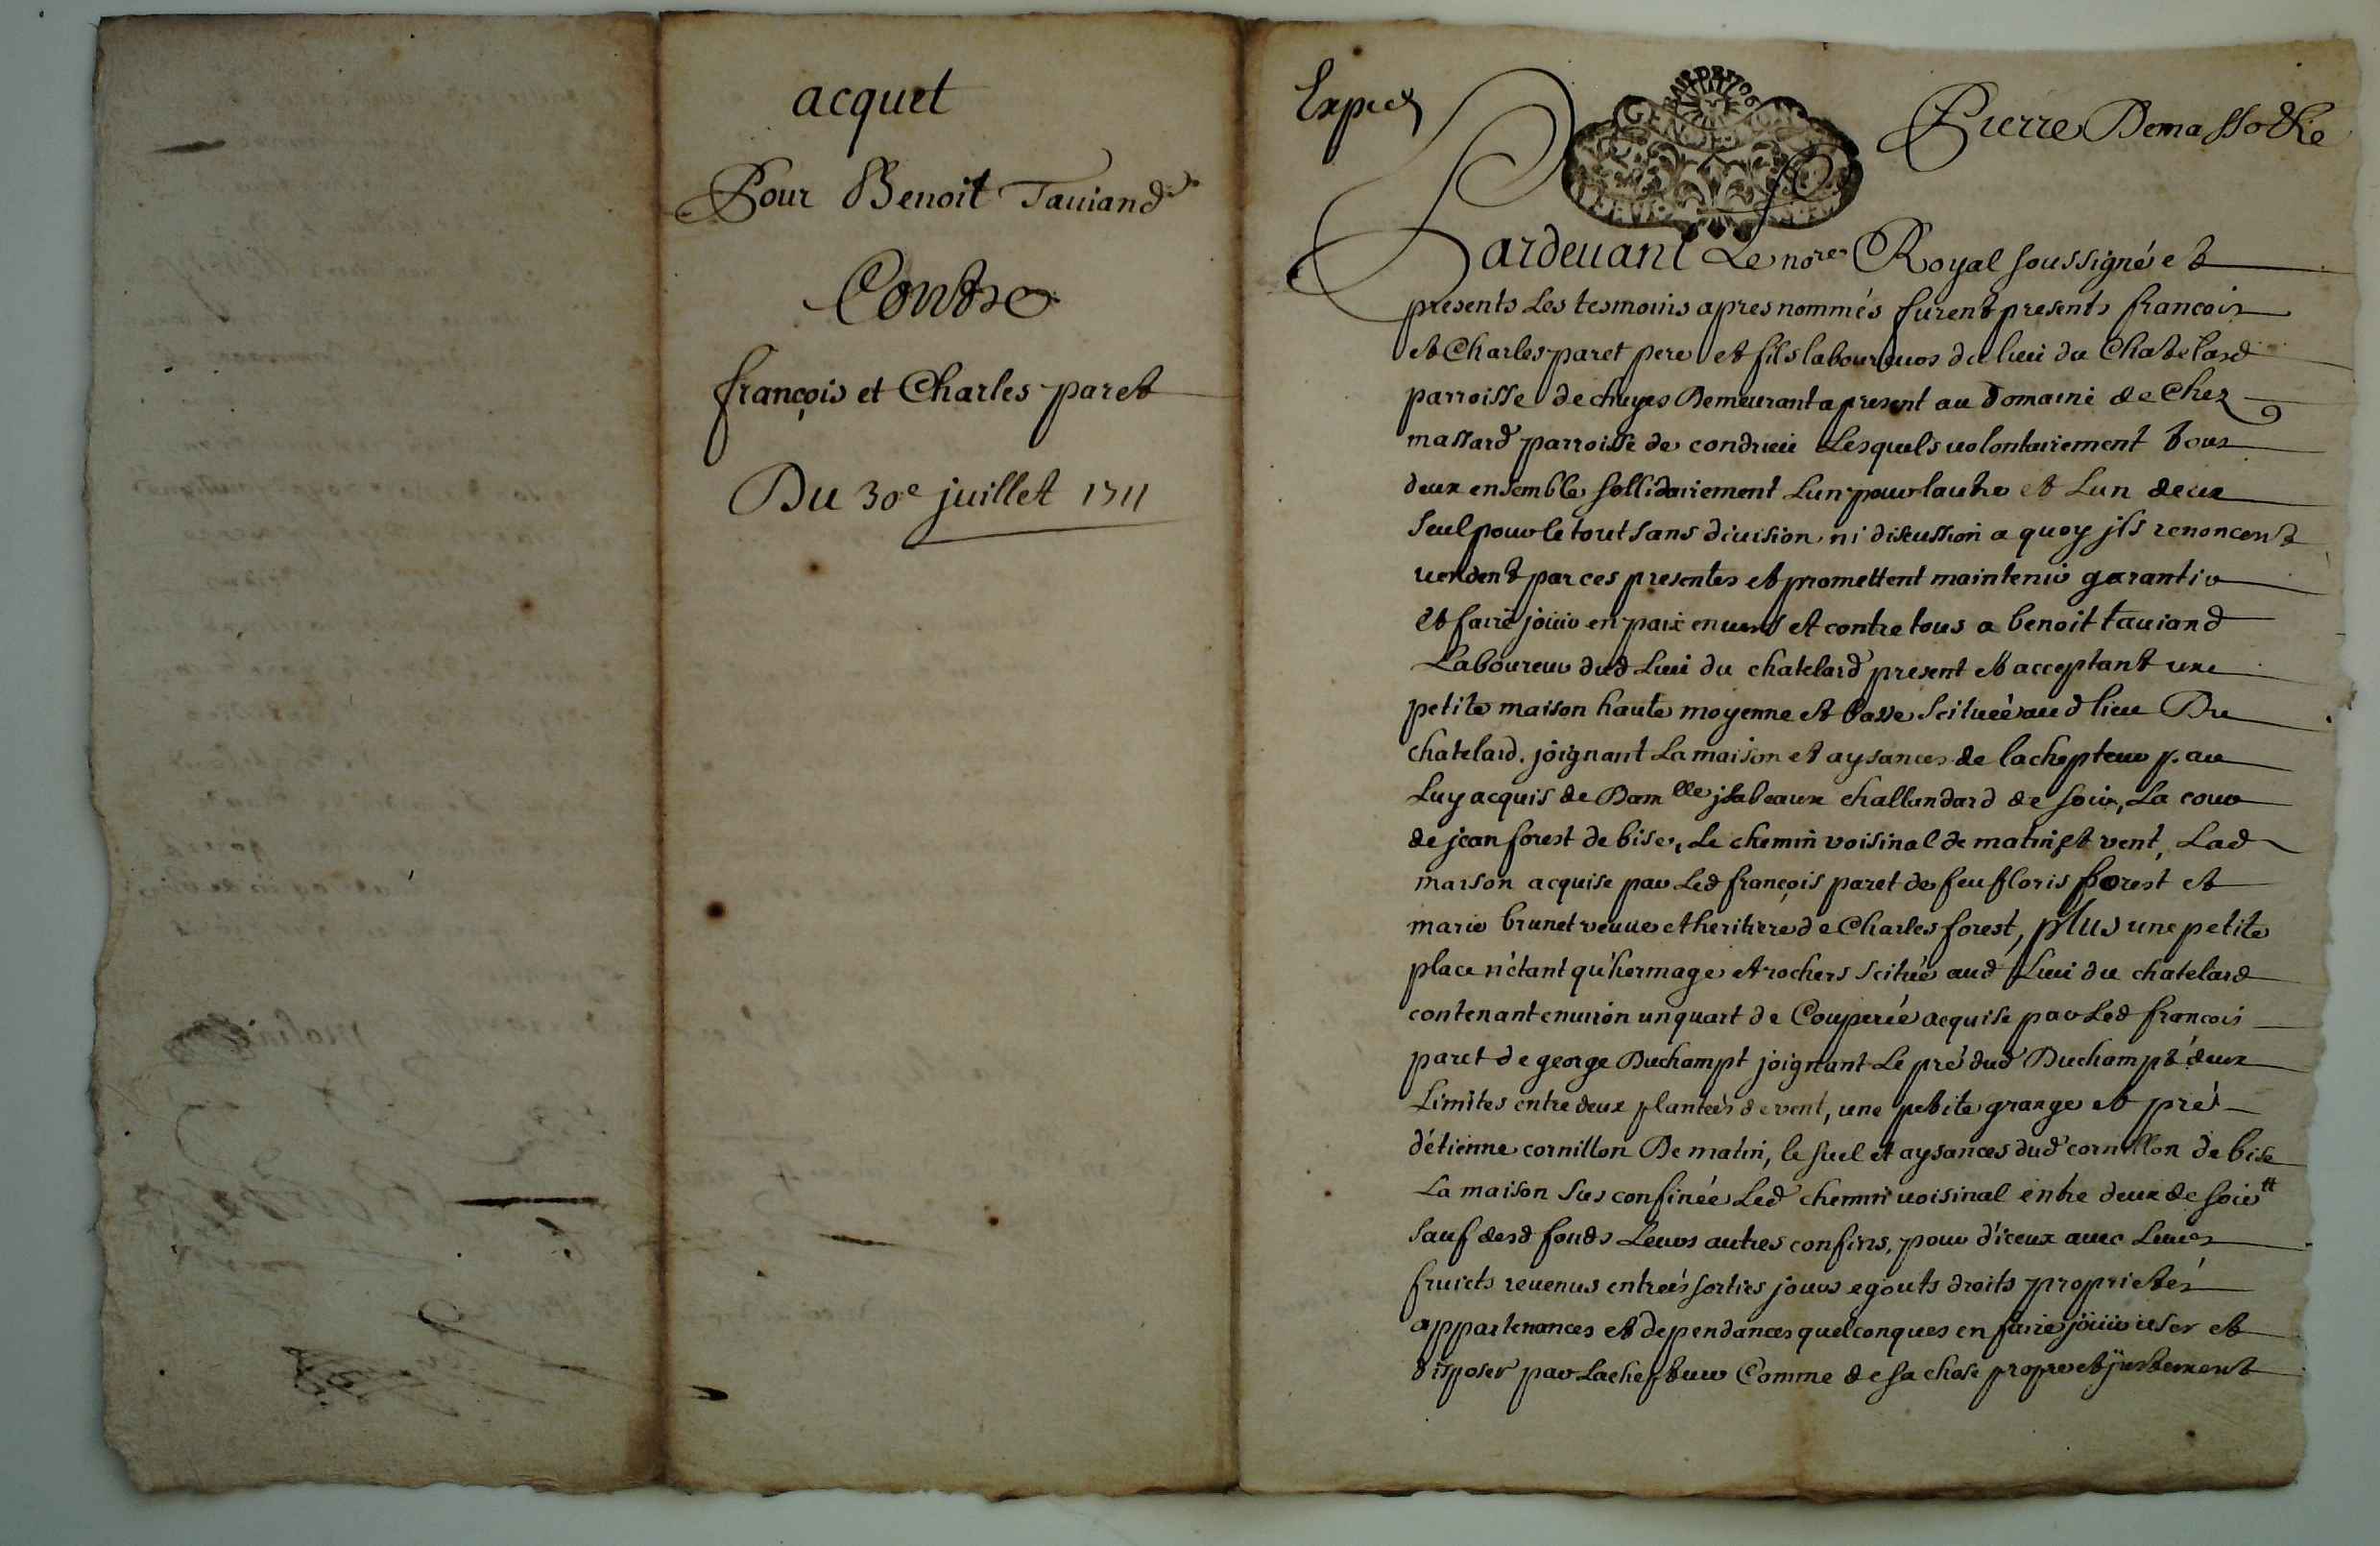 acquet
Pour Benoit Tauiand
Contre
françois et Charles paret
Du 30e juillet 1711
Exped
Pierre
Pardeuant Le nore Royal soussigné et
presents Les tesmoins apres nommés furent present francois
et Charles paret pere et fils laboureurs du lieu du Chatelard
parroisse de chuyes Demeurant apresent au Domaine de Chez
massard parroisse de condrieu Lesquels uolontairement tous
deux ensemble sollidairement Lun pour lautre et Lun deux
seul pour le tout sans diuision ni discussion a quoy jls renoncent
uendent par ces presentes et promettent maintenir garantir
et faire jouir en paix enuers et contre tous a benoit tauiand
Laboureur dud Lieu du chatelard present et acceptant une
petite maison haute moyenne et basse scituée aud lieu Du
chatelard. joignant La maison et aysances de lachepteur par
Luy acquis de Damlle jsabeaux challandard de soir, La cour
de jean forest de bise, Le chemin voisinal de matin et vent, Lad
maison acquise par Led françois paret de feu floris forest et
marie brunet veuue et heritiere de Charles forest, plus une petite
place n'étant qu'hermage et rochers scitüée aud Lieu du chatelard
contenant enuiron un quart de Couperée acquise par Led francois
paret de george Duchampt joignant Le pré dud Duchampt deux
Limites entre deux plantées de vent, une petite grange et pré
d'étienne cornillon De matin, le suel et aysances dud cornillon de bise
La maison sus confinée Led chemin uoisinal entre deux de soir
sauf desd fonds Leurs autres confins, pour d'iceux auec Leurs
fruicts reuenus entrées sorties jours egouts droits proprietés
appartenances et dependances quelconques en faire joüir user et
disposer par Lachepteur Comme de sa chose propre et justement